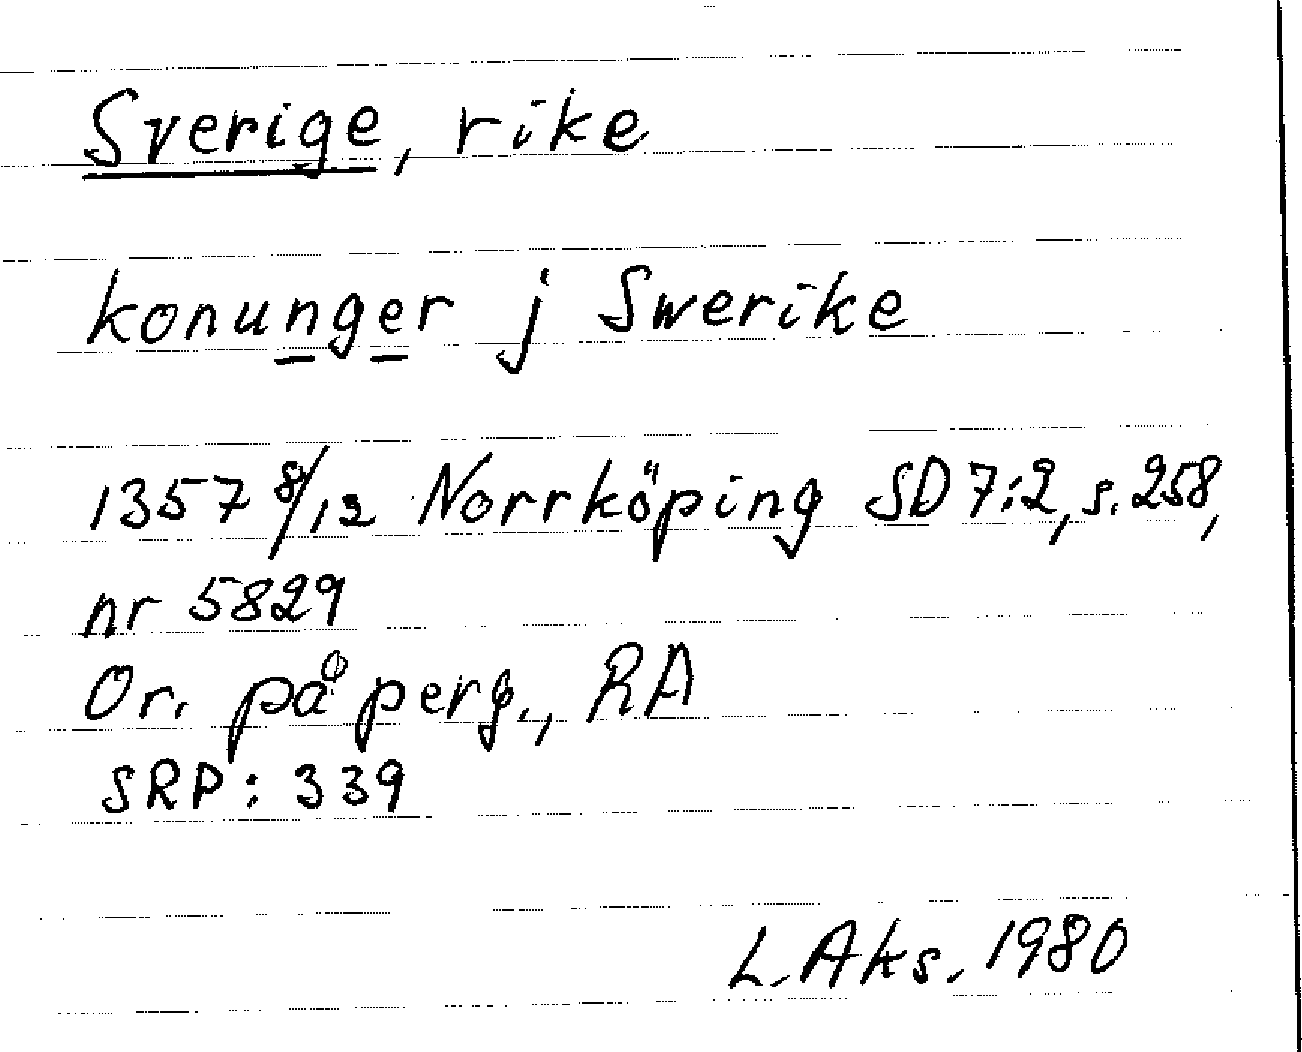 Sverige, rike
konunger j Swerike
1357 8/12 Norrköping SD 7:2, s. 258,
nr 5829
Or. på perg., RA
SRP: 339
L. Aks. 1980